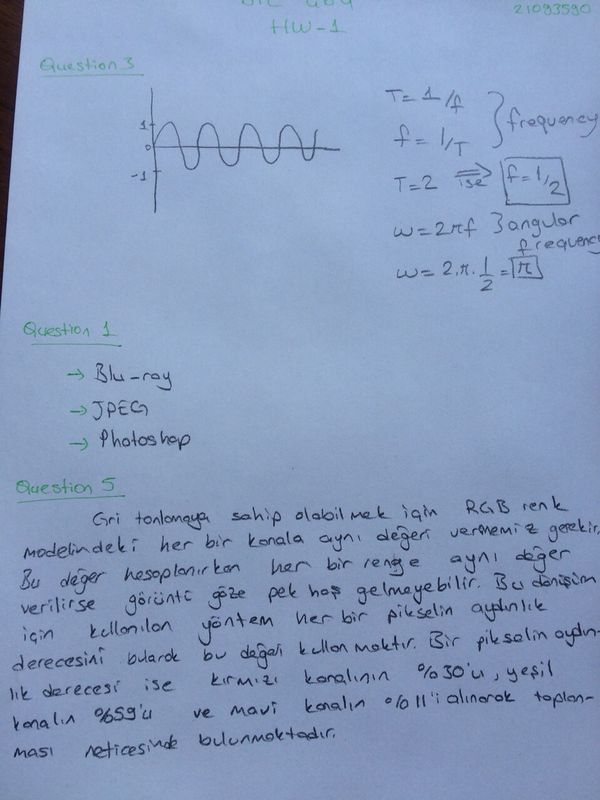 21093590
HW-1
Question 3
1
0
-1
T = 1/f
f = 1/T } frequency
T = 2 ⇒ ise f = 1/2
ω = 2πf } angular frequency
ω = 2.π.1/2 = π
Question 1
→ Blu-ray
→ JPEG
→ Photoshop
Question 5
Gri tonlamaya sahip olabilmek için RGB renk
modelindeki her bir kanala aynı değeri vermemiz gerekir.
Bu değer hesaplanırken her bir renge aynı değer
verilirse görüntü göze pek hoş gelmeyebilir. Bu dönüşüm
için kullanılan yöntem her bir pikselin aydınlık
derecesini bularak bu değeri kullanmaktır. Bir pikselin aydın-
lık derecesi ise kırmızı kanalının %30'u, yeşil
kanalın %59'u ve mavi kanalın %11'i alınarak toplan-
ması neticesinde bulunmaktadır.